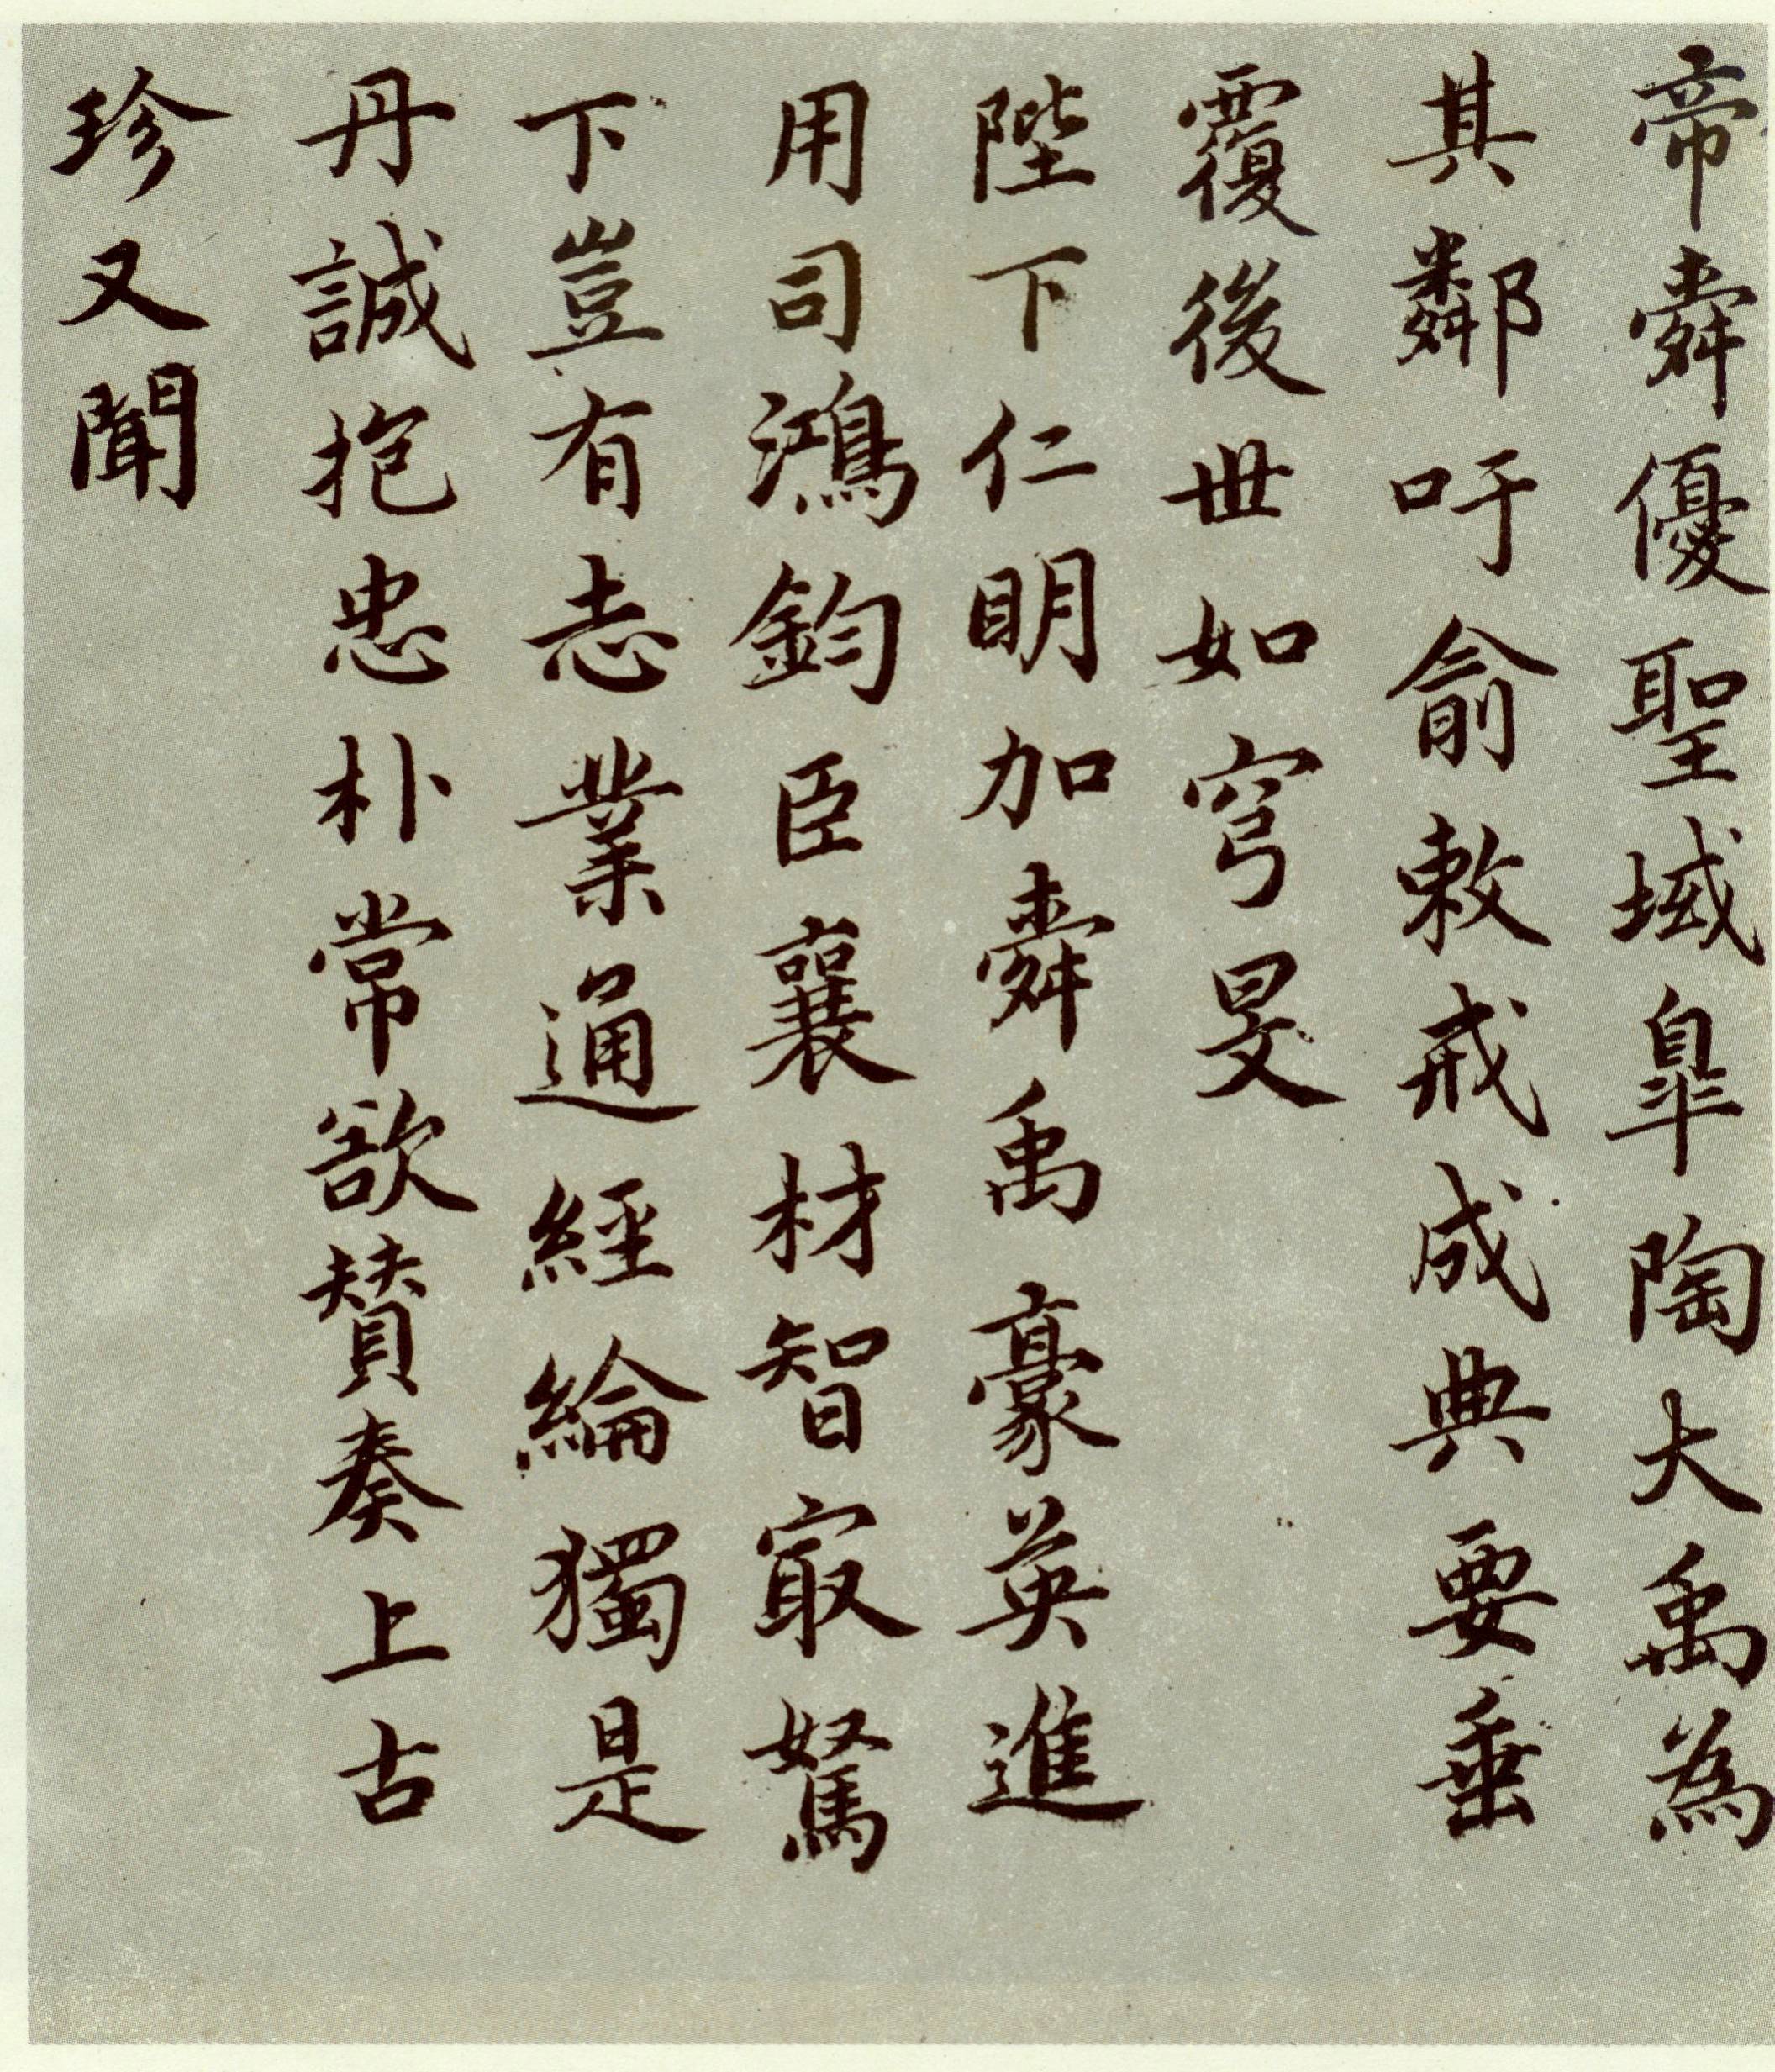 帝舜優聖域皐陶大禹為
其鄰吁俞敕戒成典要垂
覆後世如穹旻
陛下仁明加舜禹豪英進
用司鴻鈞臣襄材智冣駑
下豈有志業通經綸獨是
丹誠抱忠朴常欲賛奏上古
珍又聞